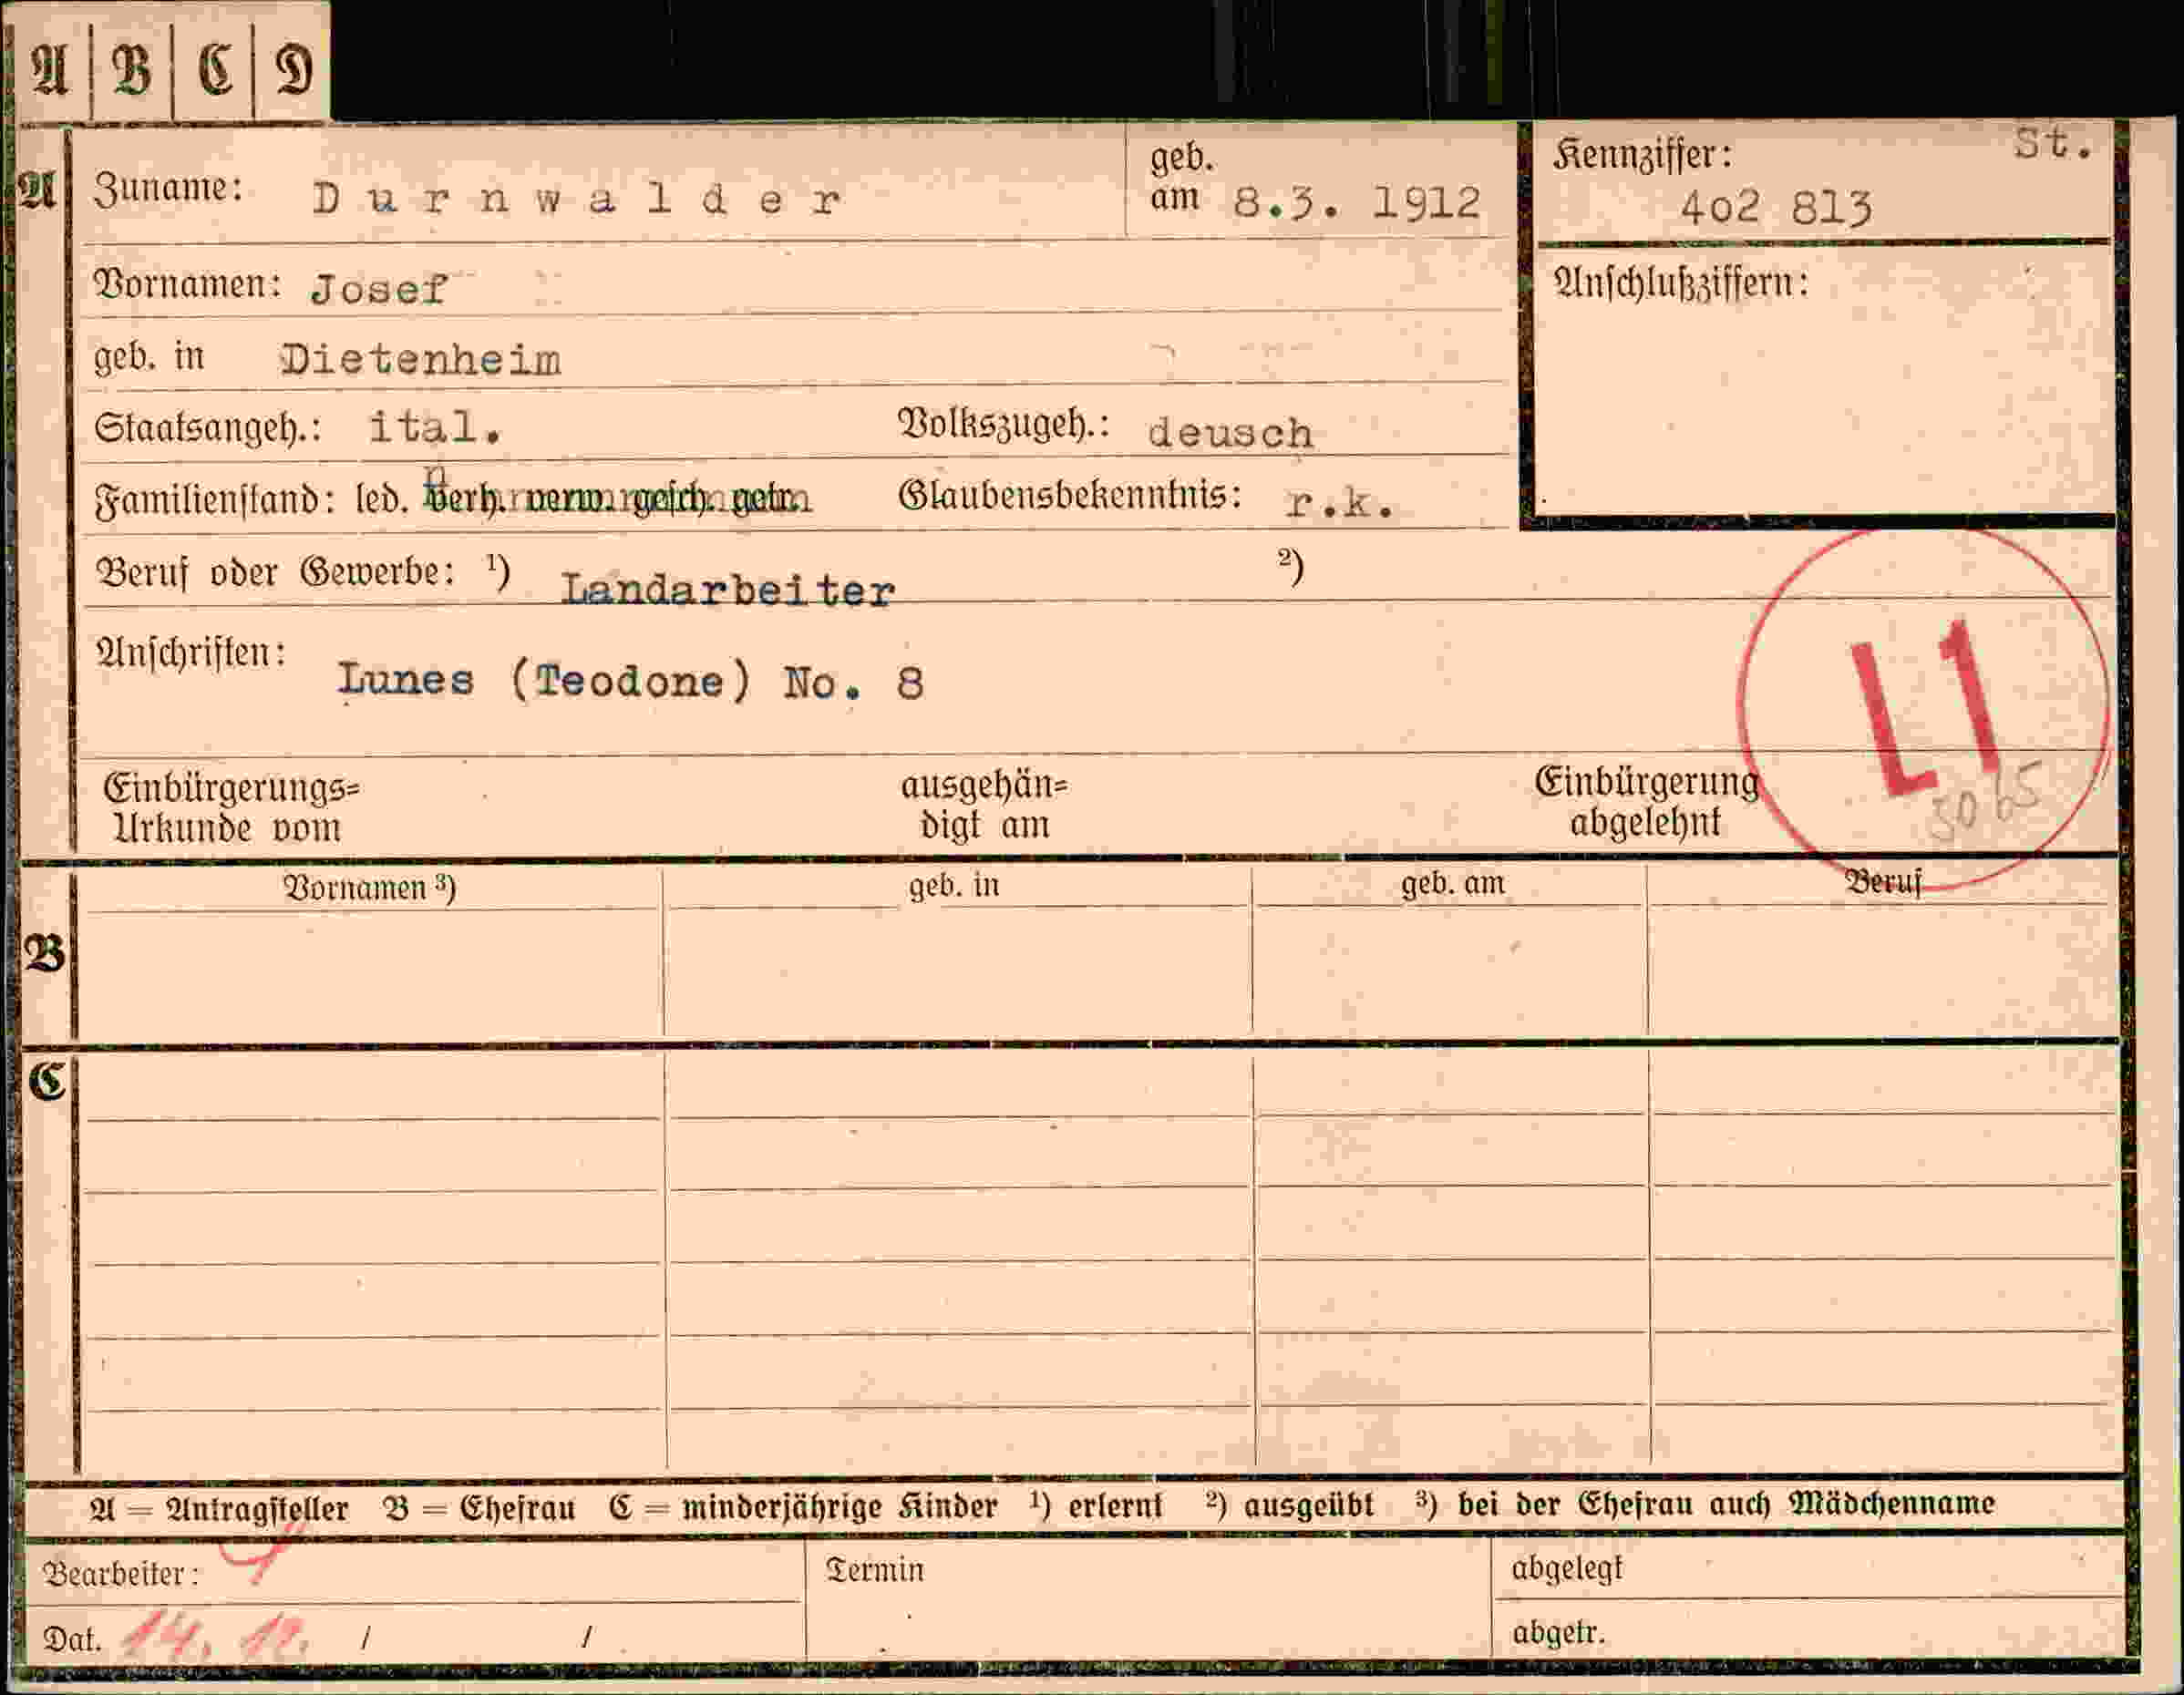 A B C D
A Zuname: Durnwalder geb. am 8.3. 1912
Kennziffer: St.
402 813
Vornamen: Josef
Anschlußziffern:
geb. in Dietenheim
Staatsangeh.: ital. Volkszugeh.: deusch
Familienstand: led. verh. verw. gesch. getr. Glaubensbekenntnis: r.k.
Beruf oder Gewerbe: ¹) Landarbeiter ²)
Anschriften: Lunes (Teodone) No. 8
L1
Einbürgerungs=
Urkunde vom
ausgehän=
digt am
Einbürgerung
abgelehnt
Vornamen ³) geb. in geb. am Beruf
B
C
A = Antragsteller B = Ehefrau C = minderjährige Kinder ¹) erlernt ²) ausgeübt ³) bei der Ehefrau auch Mädchenname
Bearbeiter: Termin abgelegt
Dat. 14. 12. / / abgetr.